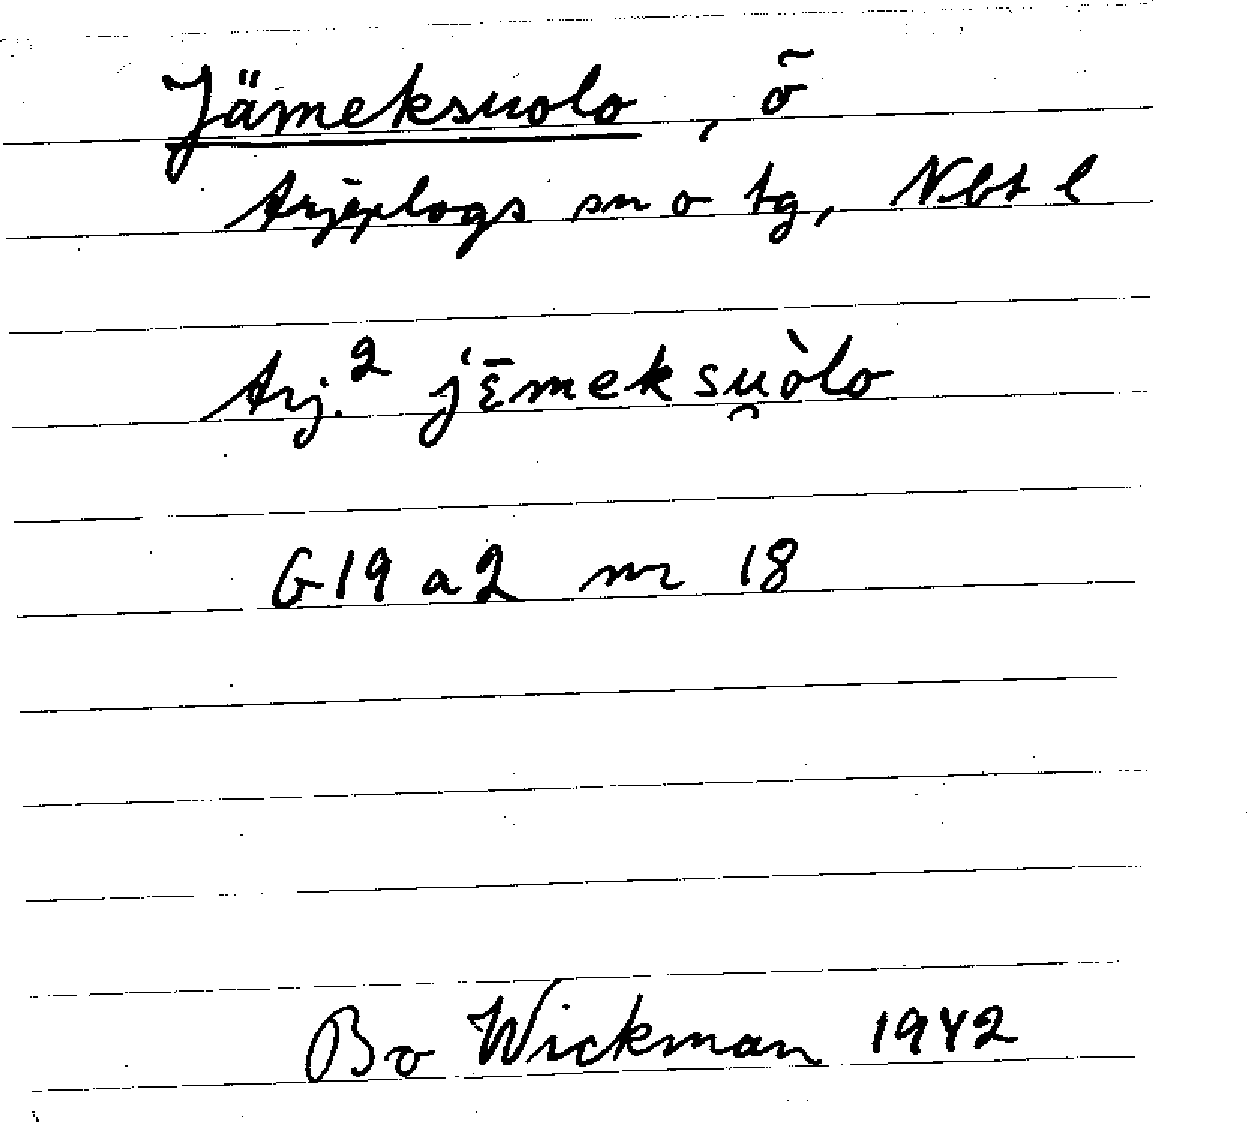 Jämeksuolo, õ
Arjeplogs sn o tg, Nbt l
Arj.² jɛ̄meksu̯òlo
G19 a2 nr 18
Bo Wickman 1942